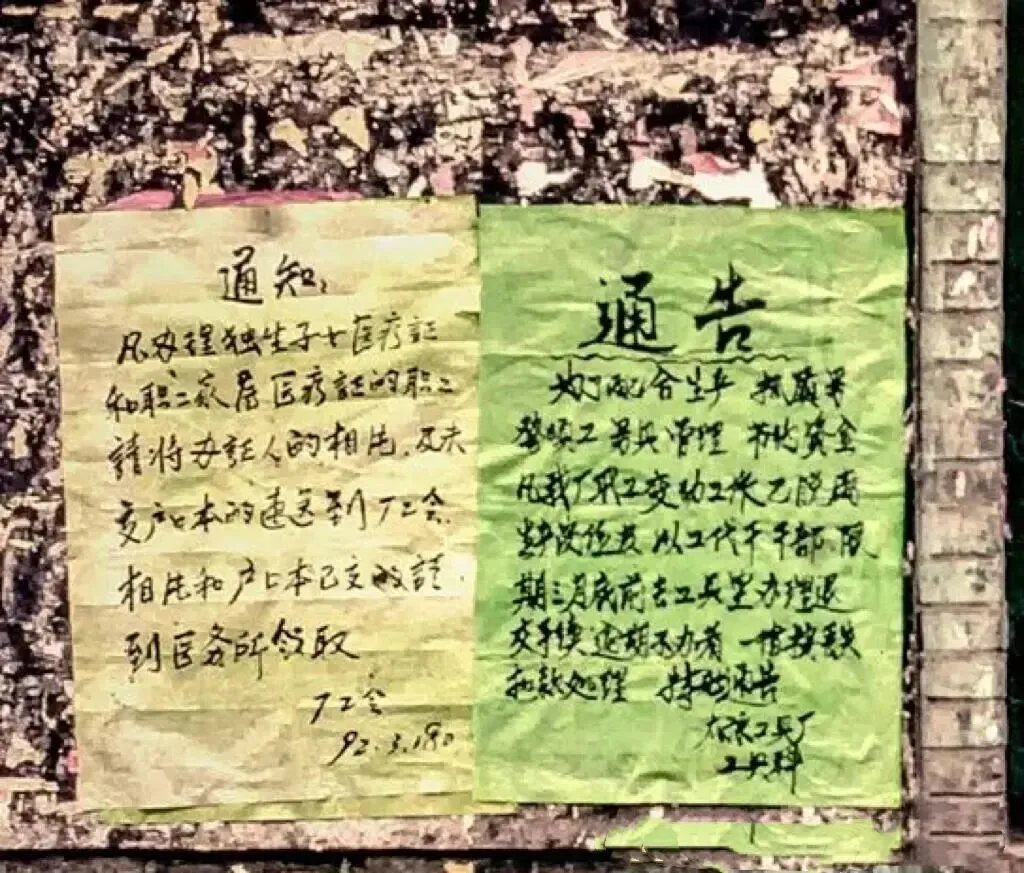 通知:
凡办理独生子女医疗証
和职工家属医疗証的职工
請将办証人的相片,及未
交户口本的速送到厂工会.
相片和户口本已交的請
到医务所领取
厂工会
92.3.18日
通告
为了配合生产
整顿工具管理 节约资金
凡我厂职工变动工作已脱离
生产岗位及以工代干干部,限
期三月底前去工具室办理退
交手续逾期不办者 一律按丢失
扣款处理 特此通告
工具厂
工具科